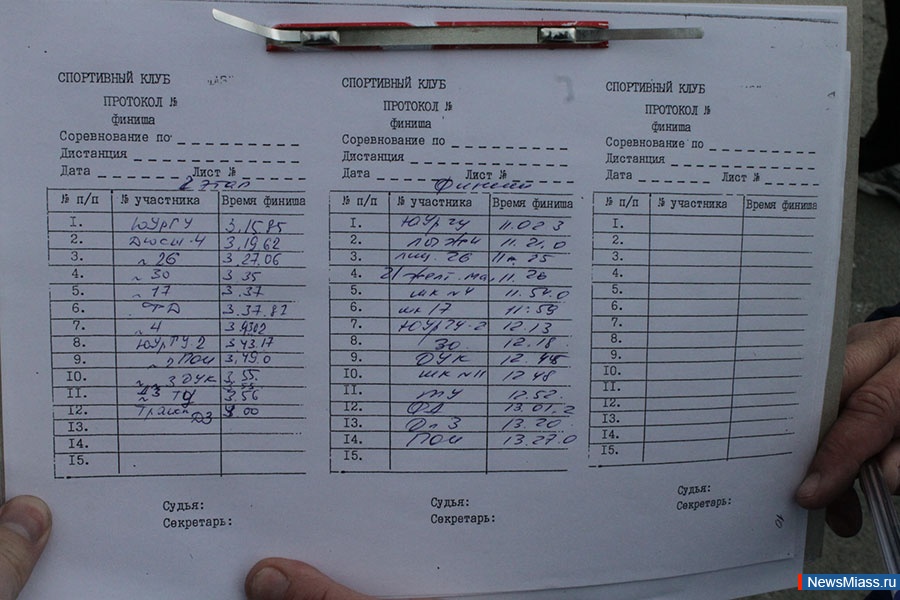 СПОРТИВНЫЙ КЛУБ
ПРОТОКОЛ №
финиша
Соревнование по
Дистанция
Дата Лист №
2 этап
№ п/п № участника Время финиша
1. ЮУрГУ 3,15,85
2. Дюсш-4 3,19,62
3. 26 3,27,06
4. 30 3,35
5. 17 3,37
6. 3.37.82
7. 4
8. ЮУрГУ-2 3 43.17
9. ПОИ 3,49,0
10. 3,55
11. 3,56
12. 00
13.
14.
15.
Судья:
Секретарь:
СПОРТИВНЫЙ КЛУБ
ПРОТОКОЛ №
финиша
Соревнование по
Дистанция
Дата Лист №
Финиш
№ п/п № участника Время финиша
1. ЮУрГУ 11.02 3
2. лыжи 11.21,0
3. лиц. 26 25
4. 11.26
5. шк №4 11.54.0
6. шк 17 11:59
7. ЮУрГУ-2 12.13
8. 30 12.18
9. ДУК 12.45
10. шк №11 12 48
11. 12.52
12. 13.01.2
13. 13.20
14. ПОИ 13.27.0
15.
Судья:
Секретарь:
СПОРТИВНЫЙ КЛУБ
ПРОТОКОЛ №
финиша
Соревнование по
Дистанция
Дата Лист №
№ п/п № участника Время финиша
1.
2.
3.
4.
5.
6.
7.
8.
9.
10.
11.
12.
13.
14.
15.
Судья:
Секретарь:
10
NewsMiass.ru